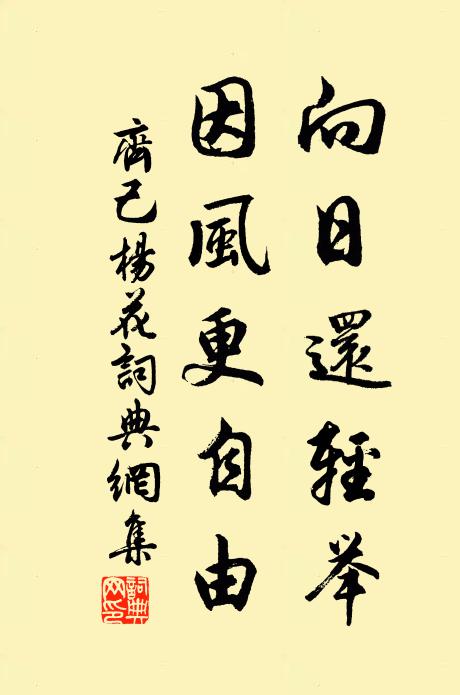 向日還輕举
因風更自由
齊己楊花詞典網集
詞典網印